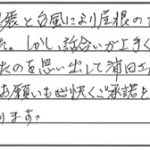 と台風により屋根の
た。しかし、話合いが上手く
たのを思い出して浦田工
お願いも心快くご承諾
ります。